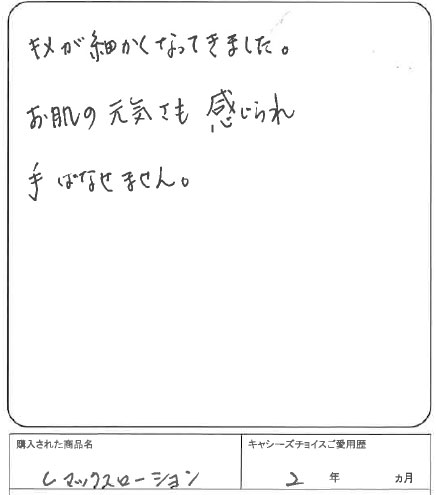 キメが細かくなってきました。
お肌の元気さも感じられ
手ばなせません。
購入された商品名
キャシーズチョイスご愛用歴
Cマックスローション
2年 ヵ月